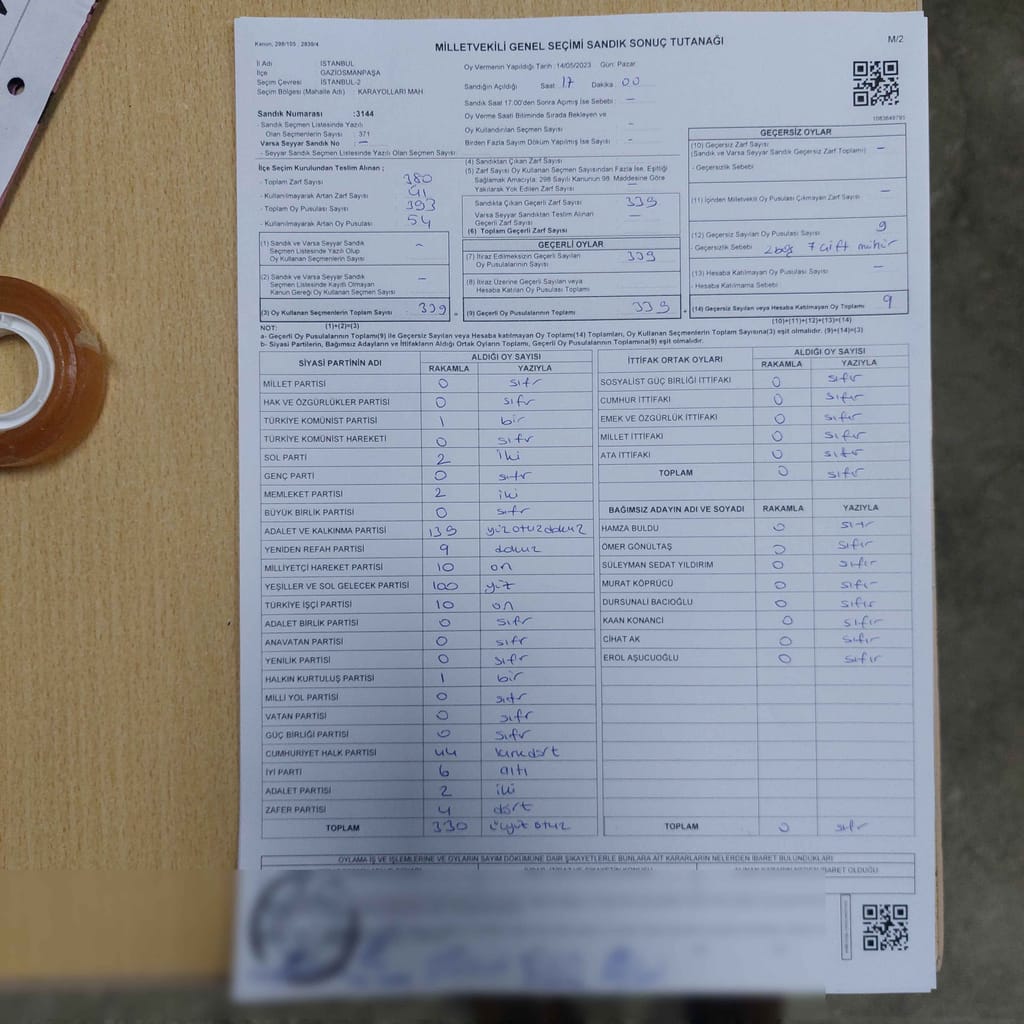 Kanun: 298/105 : 2839/4
MİLLETVEKİLİ GENEL SEÇİMİ SANDIK SONUÇ TUTANAĞI
M/2
İl Adı İSTANBUL
İlçe GAZİOSMANPAŞA
Seçim Çevresi İSTANBUL-2
Seçim Bölgesi (Mahalle Adı) : KARAYOLLARI MAH
Sandık Numarası :3144
- Sandık Seçmen Listesinde Yazılı
Olan Seçmenlerin Sayısı : 371
Varsa Seyyar Sandık No —
- Seyyar Sandık Seçmen Listesinde Yazılı Olan Seçmen Sayısı
Oy Vermenin Yapıldığı Tarih :14/05/2023 Gün: Pazar
Sandığın Açıldığı Saat 17 Dakika 00
Sandık Saat 17.00'den Sonra Açmış İse Sebebi : —
Oy Verme Saati Bitiminde Sırada Bekleyen ve
Oy Kullandırılan Seçmen Sayısı -
Birden Fazla Sayım Döküm Yapılmış İse Sayısı : -
1083649791
İlçe Seçim Kurulundan Teslim Alınan ;
- Toplam Zarf Sayısı 380
- Kullanılmayarak Artan Zarf Sayısı 41
- Toplam Oy Pusulası Sayısı 393
- Kullanılmayarak Artan Oy Pusulası 54
(1) Sandık ve Varsa Seyyar Sandık
Seçmen Listesinde Yazılı Olup
Oy Kullanan Seçmenlerin Sayısı -
(2) Sandık ve Varsa Seyyar Sandık
Seçmen Listesinde Kayıtlı Olmayan
Kanun Gereği Oy Kullanan Seçmen Sayısı —
(3) Oy Kullanan Seçmenlerin Toplam Sayısı 339
(1)+(2)=(3)
(4) Sandıktan Çıkan Zarf Sayısı
(5) Zarf Sayısı Oy Kullanan Seçmen Sayısından Fazla İse, Eşitliği
Sağlamak Amacıyla; 298 Sayılı Kanunun 98. Maddesine Göre
Yakılarak Yok Edilen Zarf Sayısı —
Sandıkta Çıkan Geçerli Zarf Sayısı 339
Varsa Seyyar Sandıktan Teslim Alınan
Geçerli Zarf Sayısı —
(6) Toplam Geçerli Zarf Sayısı
GEÇERLİ OYLAR
(7) İtiraz Edilmeksizin Geçerli Sayılan
Oy Pusulalarının Sayısı 339
(8) İtiraz Üzerine Geçerli Sayılan veya
Hesaba Katılan Oy Pusulası Toplamı
= (9) Geçerli Oy Pusulalarının Toplamı 339
GEÇERSİZ OYLAR
(10) Geçersiz Zarf Sayısı
(Sandık ve Varsa Seyyar Sandık Geçersiz Zarf Toplamı) —
- Geçersizlik Sebebi
(11) İçinden Milletvekili Oy Pusulası Çıkmayan Zarf Sayısı —
(12) Geçersiz Sayılan Oy Pusulası Sayısı 9
- Geçersizlik Sebebi 2 boş 7 çift mühür
(13) Hesaba Katılmayan Oy Pusulası Sayısı —
- Hesaba Katılmama Sebebi
+ (14) Geçersiz Sayılan veya Hesaba Katılmayan Oy Toplamı 9
(10)+(11)+(12)+(13)=(14)
NOT:
a- Geçerli Oy Pusulalarının Toplamı(9) ile Geçersiz Sayılan veya Hesaba katılmayan Oy Toplamı(14) Toplamları, Oy Kullanan Seçmenlerin Toplam Sayısına(3) eşit olmalıdır. (9)+(14)=(3)
b- Siyasi Partilerin, Bağımsız Adayların ve İttifakların Aldığı Ortak Oyların Toplamı, Geçerli Oy Pusulalarının Toplamına(9) eşit olmalıdır.
SİYASİ PARTİNİN ADI ALDIĞI OY SAYISI
RAKAMLA YAZIYLA
MİLLET PARTİSİ 0 sıfır
HAK VE ÖZGÜRLÜKLER PARTİSİ 0 sıfır
TÜRKİYE KOMÜNİST PARTİSİ 1 bir
TÜRKİYE KOMÜNİST HAREKETİ 0 sıfır
SOL PARTİ 2 iki
GENÇ PARTİ 0 sıfır
MEMLEKET PARTİSİ 2 iki
BÜYÜK BİRLİK PARTİSİ 0 sıfır
ADALET VE KALKINMA PARTİSİ 139 yüzotuzdokuz
YENİDEN REFAH PARTİSİ 9 dokuz
MİLLİYETÇİ HAREKET PARTİSİ 10 on
YEŞİLLER VE SOL GELECEK PARTİSİ 100 yüz
TÜRKİYE İŞÇİ PARTİSİ 10 on
ADALET BİRLİK PARTİSİ 0 sıfır
ANAVATAN PARTİSİ 0 sıfır
YENİLİK PARTİSİ 0 sıfır
HALKIN KURTULUŞ PARTİSİ 1 bir
MİLLİ YOL PARTİSİ 0 sıfır
VATAN PARTİSİ 0 sıfır
GÜÇ BİRLİĞİ PARTİSİ 0 sıfır
CUMHURİYET HALK PARTİSİ 44 kırkdört
İYİ PARTİ 6 altı
ADALET PARTİSİ 2 iki
ZAFER PARTİSİ 4 dört
TOPLAM 330 üçyüz otuz
İTTİFAK ORTAK OYLARI ALDIĞI OY SAYISI
RAKAMLA YAZIYLA
SOSYALİST GÜÇ BİRLİĞİ İTTİFAKI 0 sıfır
CUMHUR İTTİFAKI 0 sıfır
EMEK VE ÖZGÜRLÜK İTTİFAKI 0 sıfır
MİLLET İTTİFAKI 0 sıfır
ATA İTTİFAKI 0 sıfır
TOPLAM 0 sıfır
BAĞIMSIZ ADAYIN ADI VE SOYADI RAKAMLA YAZIYLA
HAMZA BULDU 0 sıfır
ÖMER GÖNÜLTAŞ 0 sıfır
SÜLEYMAN SEDAT YILDIRIM 0 sıfır
MURAT KÖPRÜCÜ 0 sıfır
DURSUNALİ BACIOĞLU 0 sıfır
KAAN KONANCİ 0 sıfır
CİHAT AK 0 sıfır
EROL AŞUCUOĞLU 0 sıfır
TOPLAM 0 sıfır
OYLAMA İŞ VE İŞLEMLERİNE VE OYLARIN SAYIM DÖKÜMÜNE DAİR ŞİKAYETLERLE BUNLARA AİT KARARLARIN NELERDEN İBARET BULUNDUKLARI